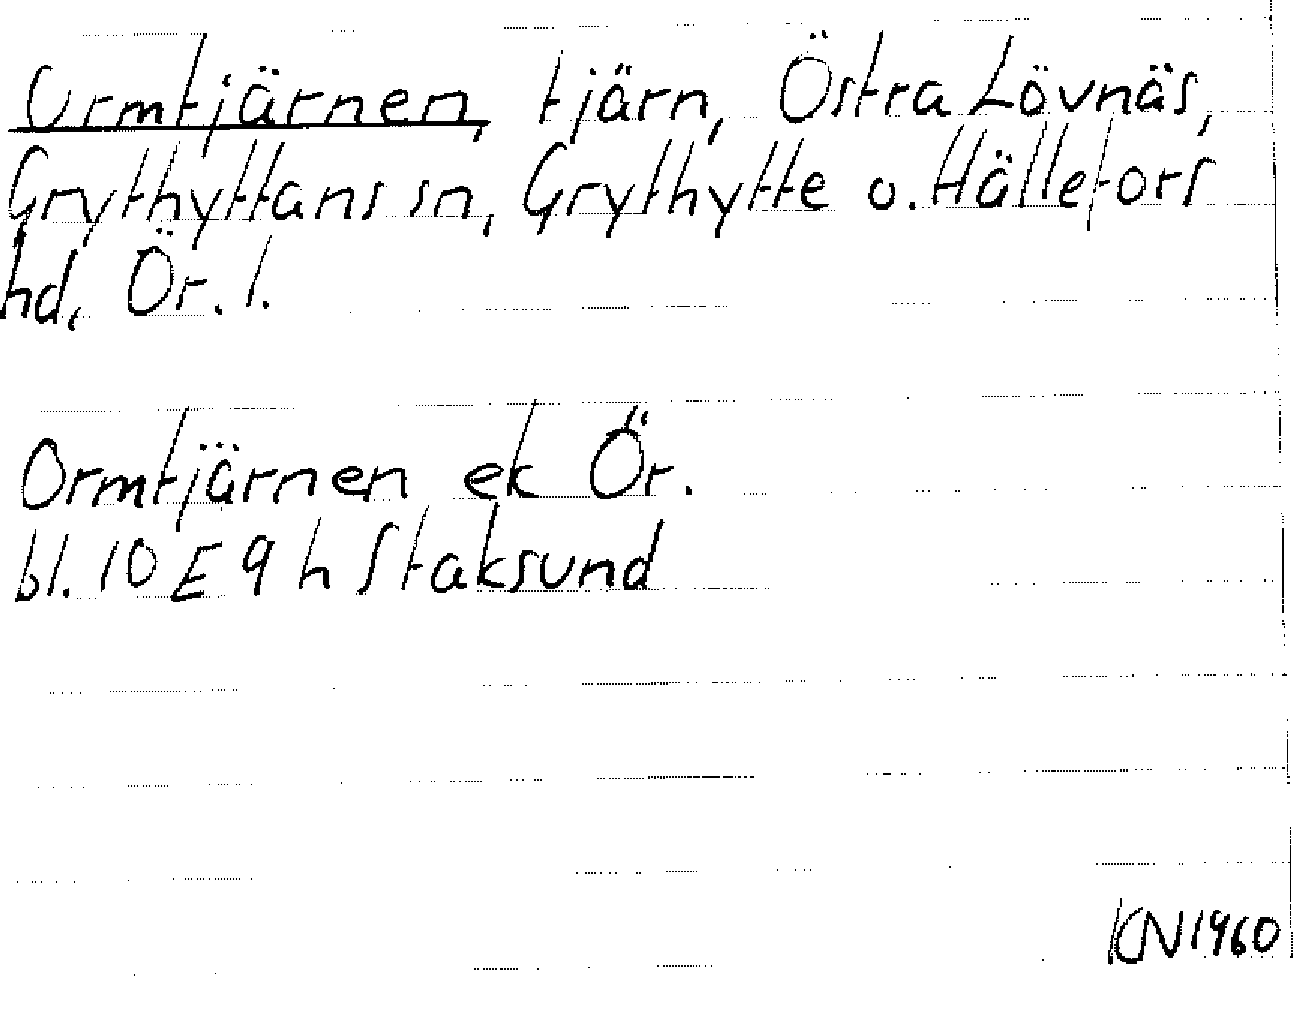 Ormtjärnen, tjärn, Östra Lövnäs,
Grythyttans sn, Grythytte o. Hällefors
hd, Ör. l.
Ormtjärnen ek Ör.
bl. 10 E 9 h Staksund
KN 1960